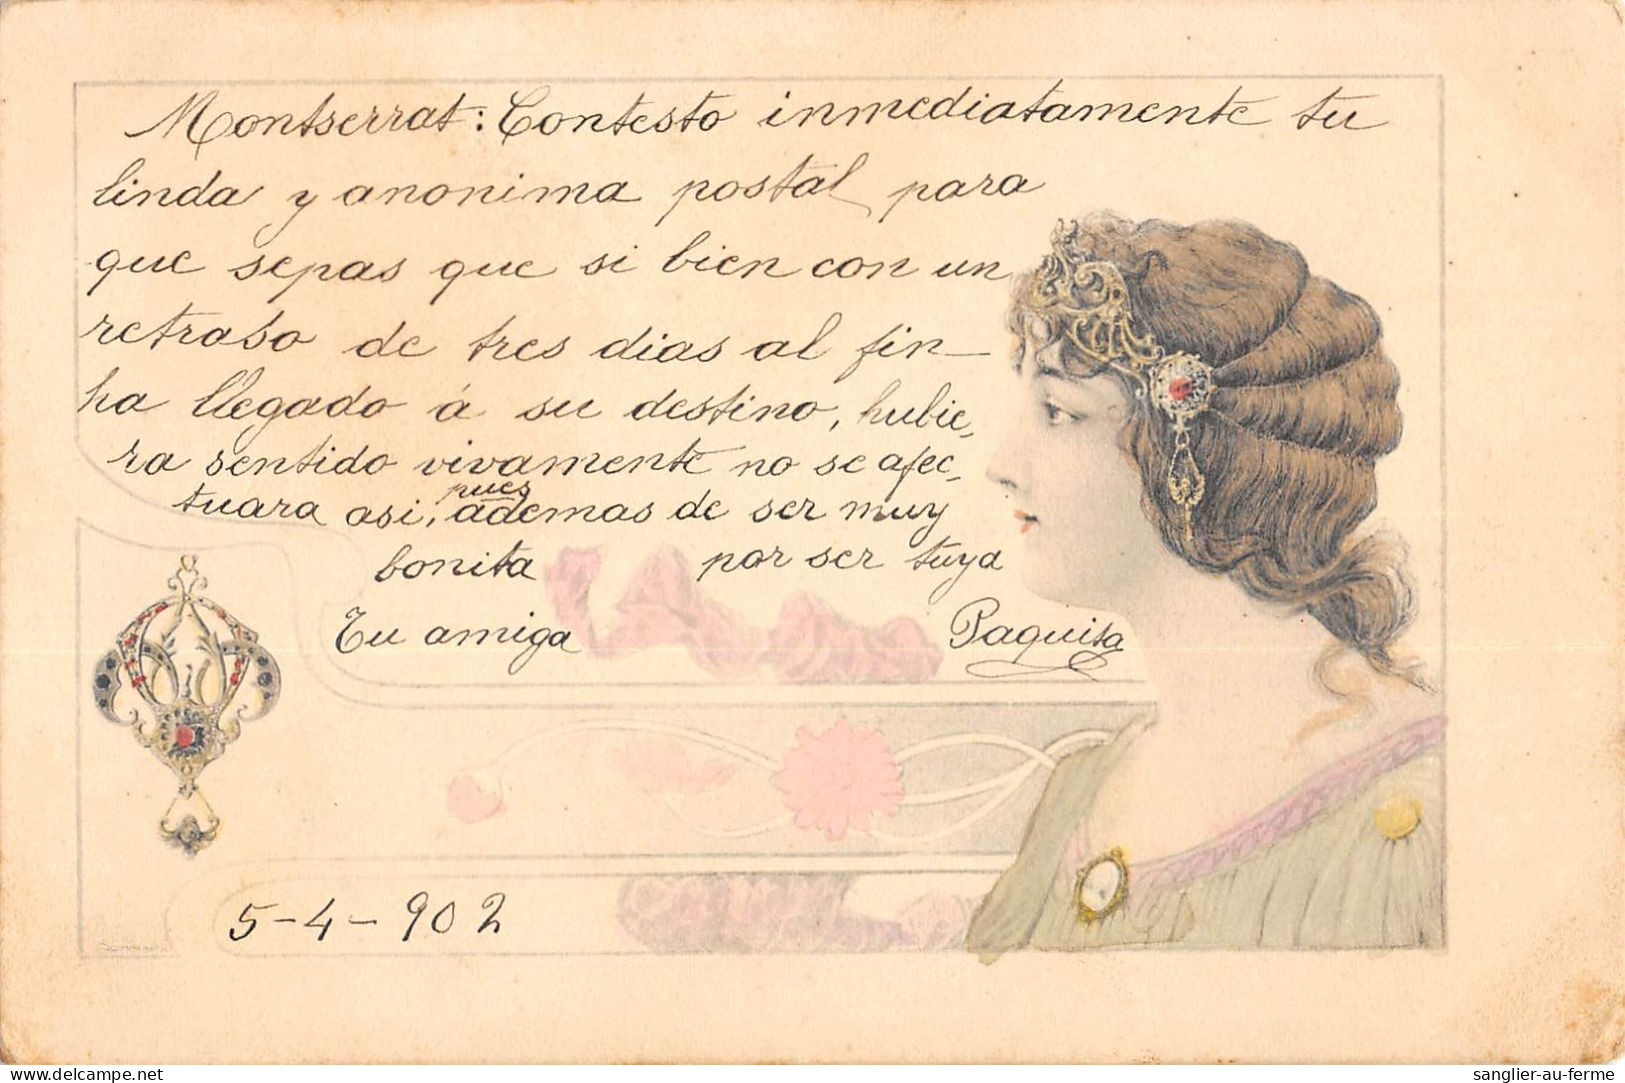 Montserrat: Contesto inmediatamente tu
linda y anonima postal para
que sepas que si bien con un
retraso de tres dias al fin
ha llegado á su destino, hubie-
ra sentido vivamente no se afec-
tuara asi, pues ademas de ser muy
bonita por ser tuya
Tu amiga Paquita
5-4-902
delcampe.net
sanglier-au-ferme